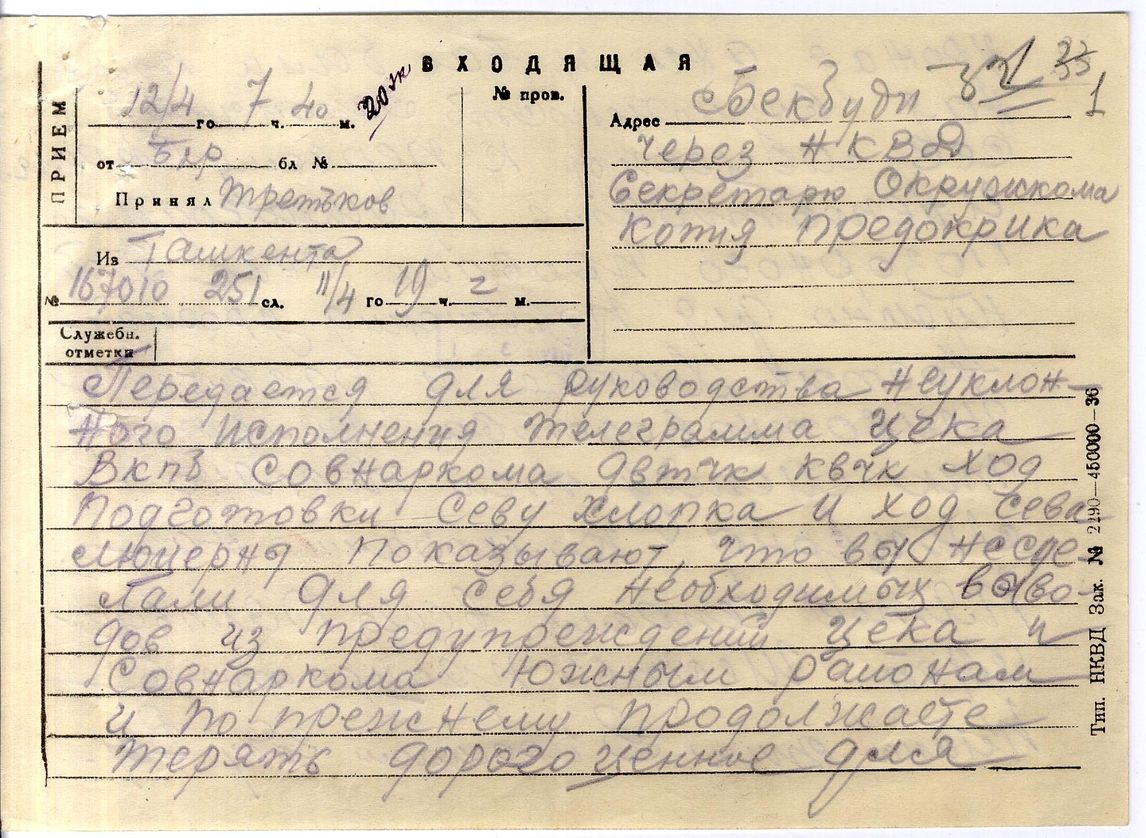 ВХОДЯЩАЯ
ПРИЕМ
12/4 го 7 ч. 40 м.
№ пров.
от Бдр бл №
Принял Третьков
Из Ташкента
№ 167010 251 сл. 11/4 го 19 ч. 2 м.
Служебн.
отметки
321 33
1
Адрес Бекбуди
через НКВД
Секретарю Окружкома
копия предокрика
Передается для руководства неуклон-
ного исполнения телеграмма цека
вкпб совнаркома двтчк квчк ход
подготовки севу хлопка и ход сева
люцерны показывают, что вы несде-
лали для себя необходимых выво-
дов из предупреждений цека и
Совнаркома южным районам
и по прежнему продолжаете
терять дорого ценное для
Тип. НКВД Зак. № 2290—450000—36